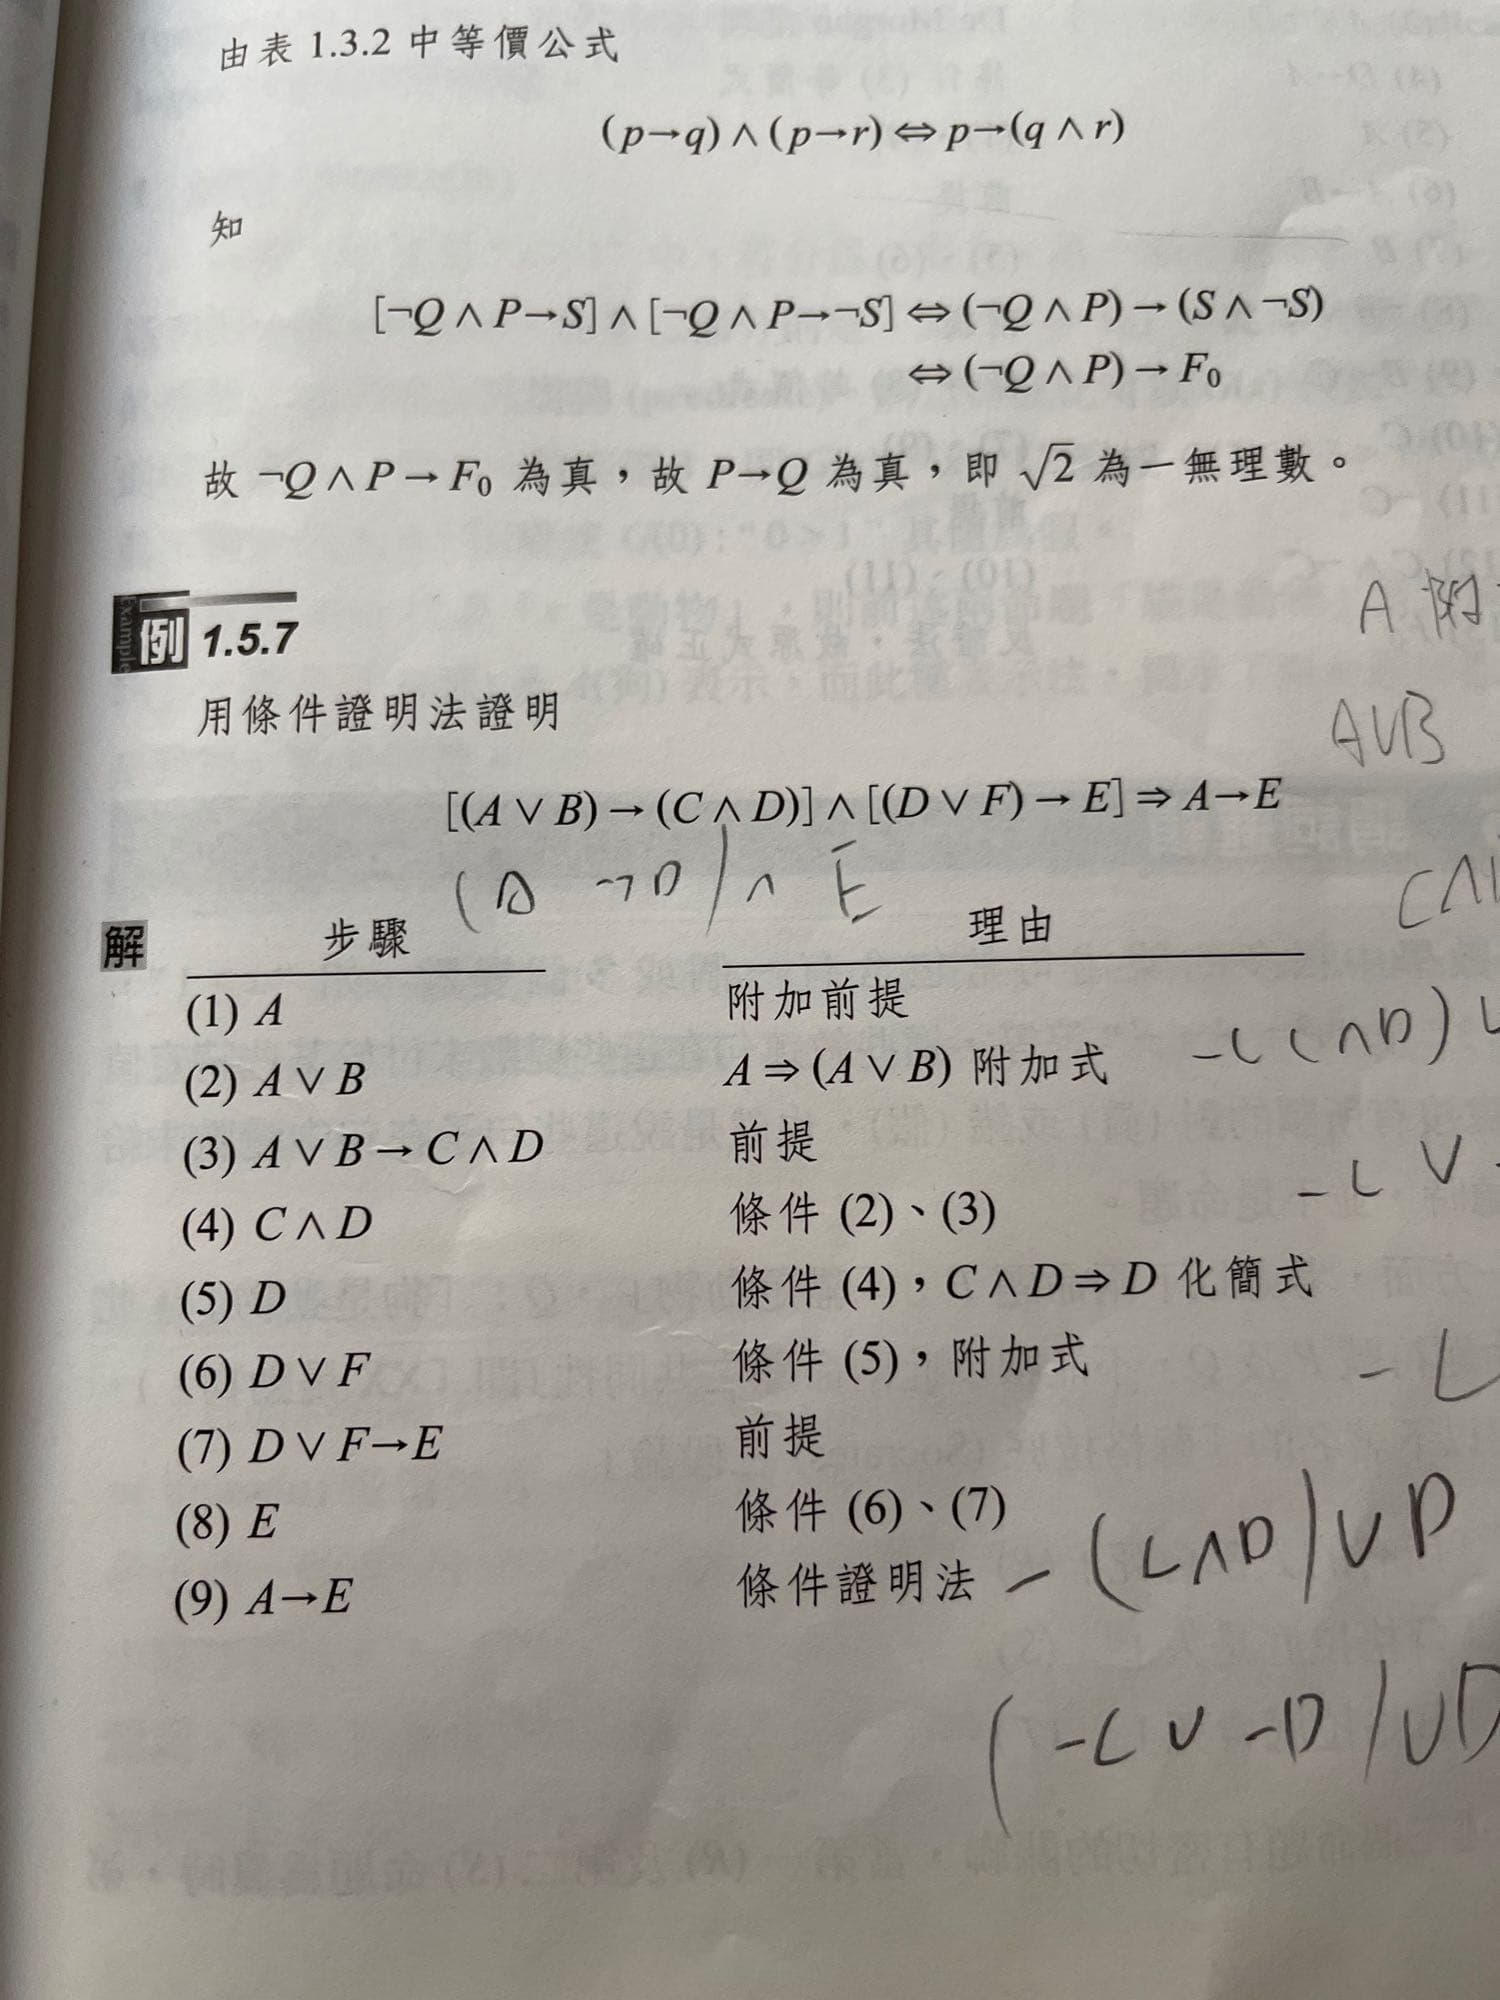 由表 1.3.2 中等價公式
(p→q)∧(p→r)⇔p→(q∧r)
知
[¬Q∧P→S]∧[¬Q∧P→¬S]⇔(¬Q∧P)→(S∧¬S)
⇔(¬Q∧P)→F₀
故 ¬Q∧P→F₀ 為真，故 P→Q 為真，即 √2 為一無理數。
Example
例 1.5.7
A 附
用條件證明法證明
A∨B
[(A∨B)→(C∧D)]∧[(D∨F)→E]⇒A→E
∧ E
C∧
解 步驟 理由
(1) A 附加前提
(2) A∨B A⇒(A∨B) 附加式
(3) A∨B→C∧D 前提
(4) C∧D 條件 (2)、(3)
(5) D 條件 (4)，C∧D⇒D 化簡式
(6) D∨F 條件 (5)，附加式
(7) D∨F→E 前提
(8) E 條件 (6)、(7)
(9) A→E 條件證明法
-(C∧D)∨D
(-C∨-D)∨D